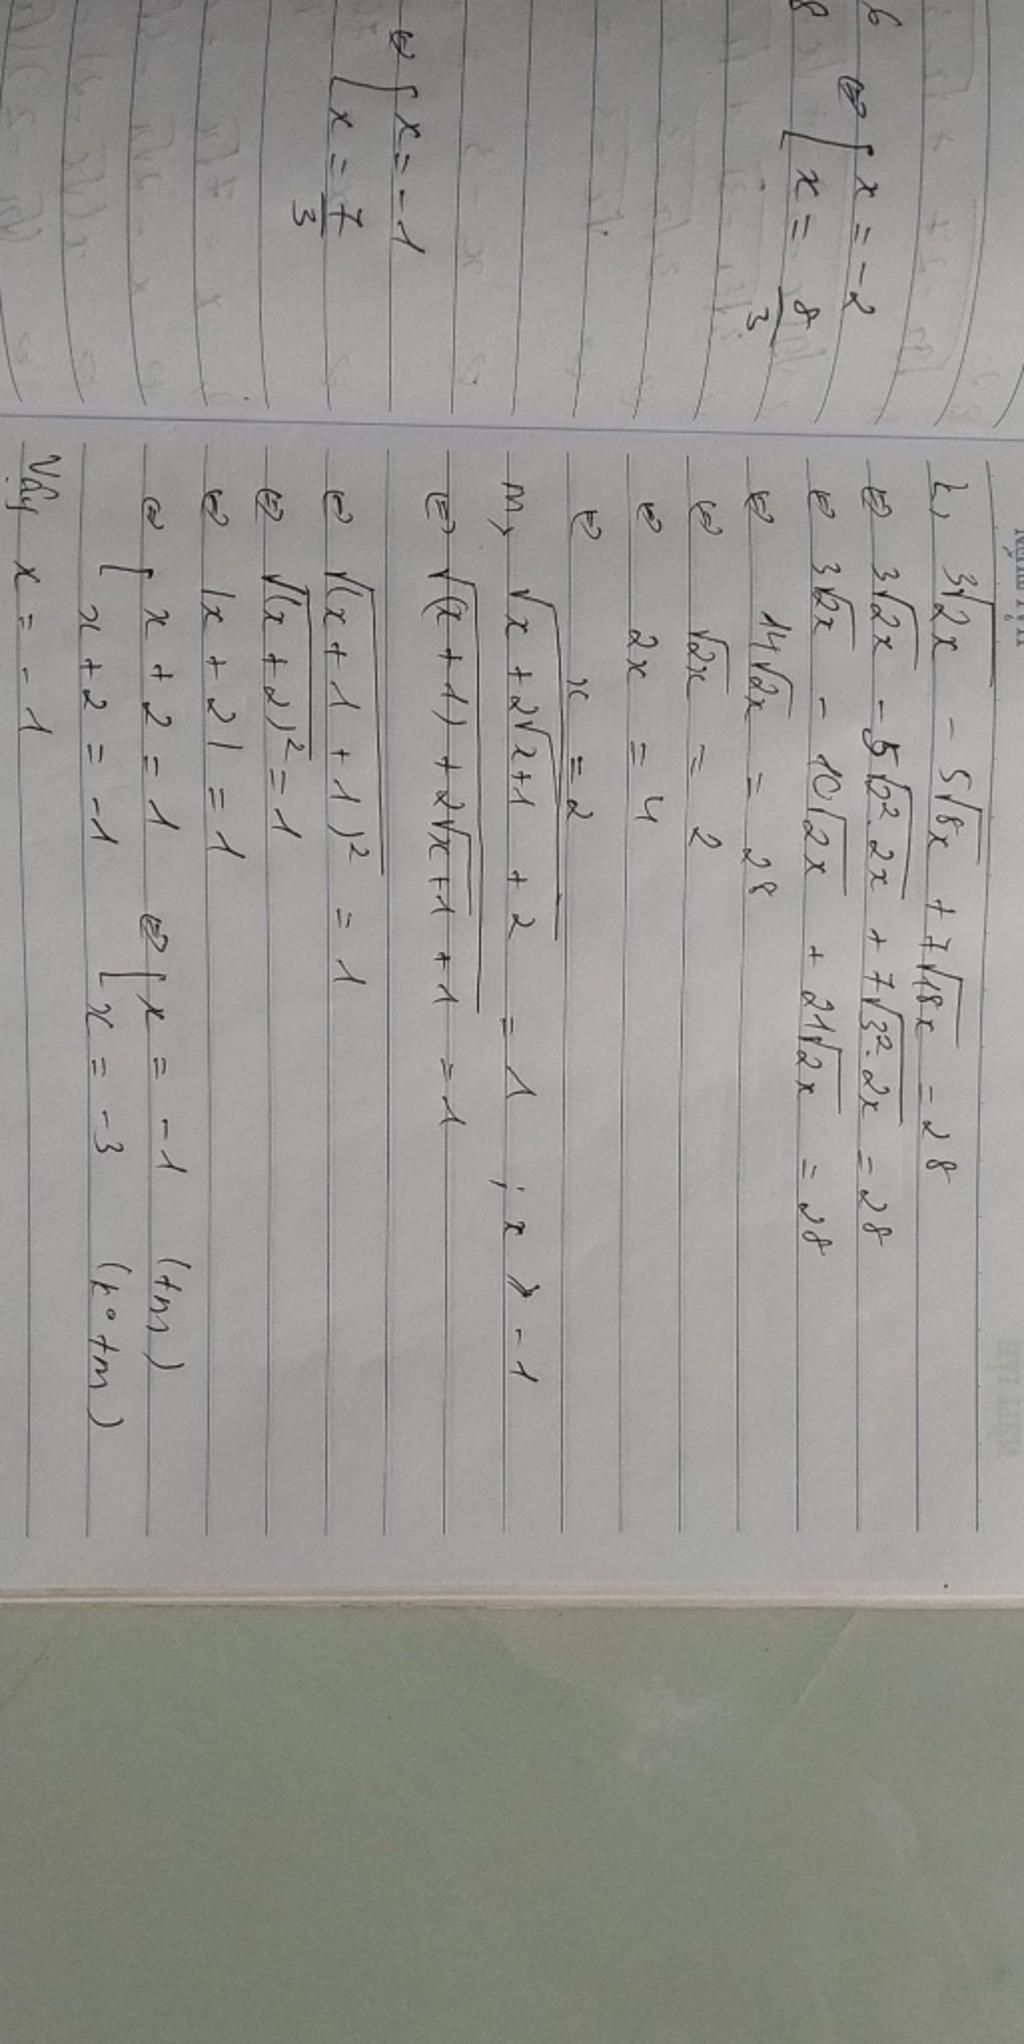 6 ⇔ [ x = -2
8 [ x = 8/3
⇔ [ x = -1
[ x = 7/3
L, 3√2x - 5√8x + 7√18x = 28
⇔ 3√2x - 5√2².2x + 7√3².2x = 28
⇔ 3√2x - 10√2x + 21√2x = 28
⇔ 14√2x = 28
⇔ √2x = 2
⇔ 2x = 4
⇔ x = 2
m, √x + 2√x+1 + 2 = 1 ; x ≥ -1
⇔ √(x + 1) + 2√x+1 + 1 = 1
⇔ √(x + 1 + 1)² = 1
⇔ √(x + 2)² = 1
⇔ |x + 2| = 1
⇔ [ x + 2 = 1 ⇔ [ x = -1 (tm)
[ x + 2 = -1 [ x = -3 (k° tm)
Vậy x = -1
HẢI TIẾN